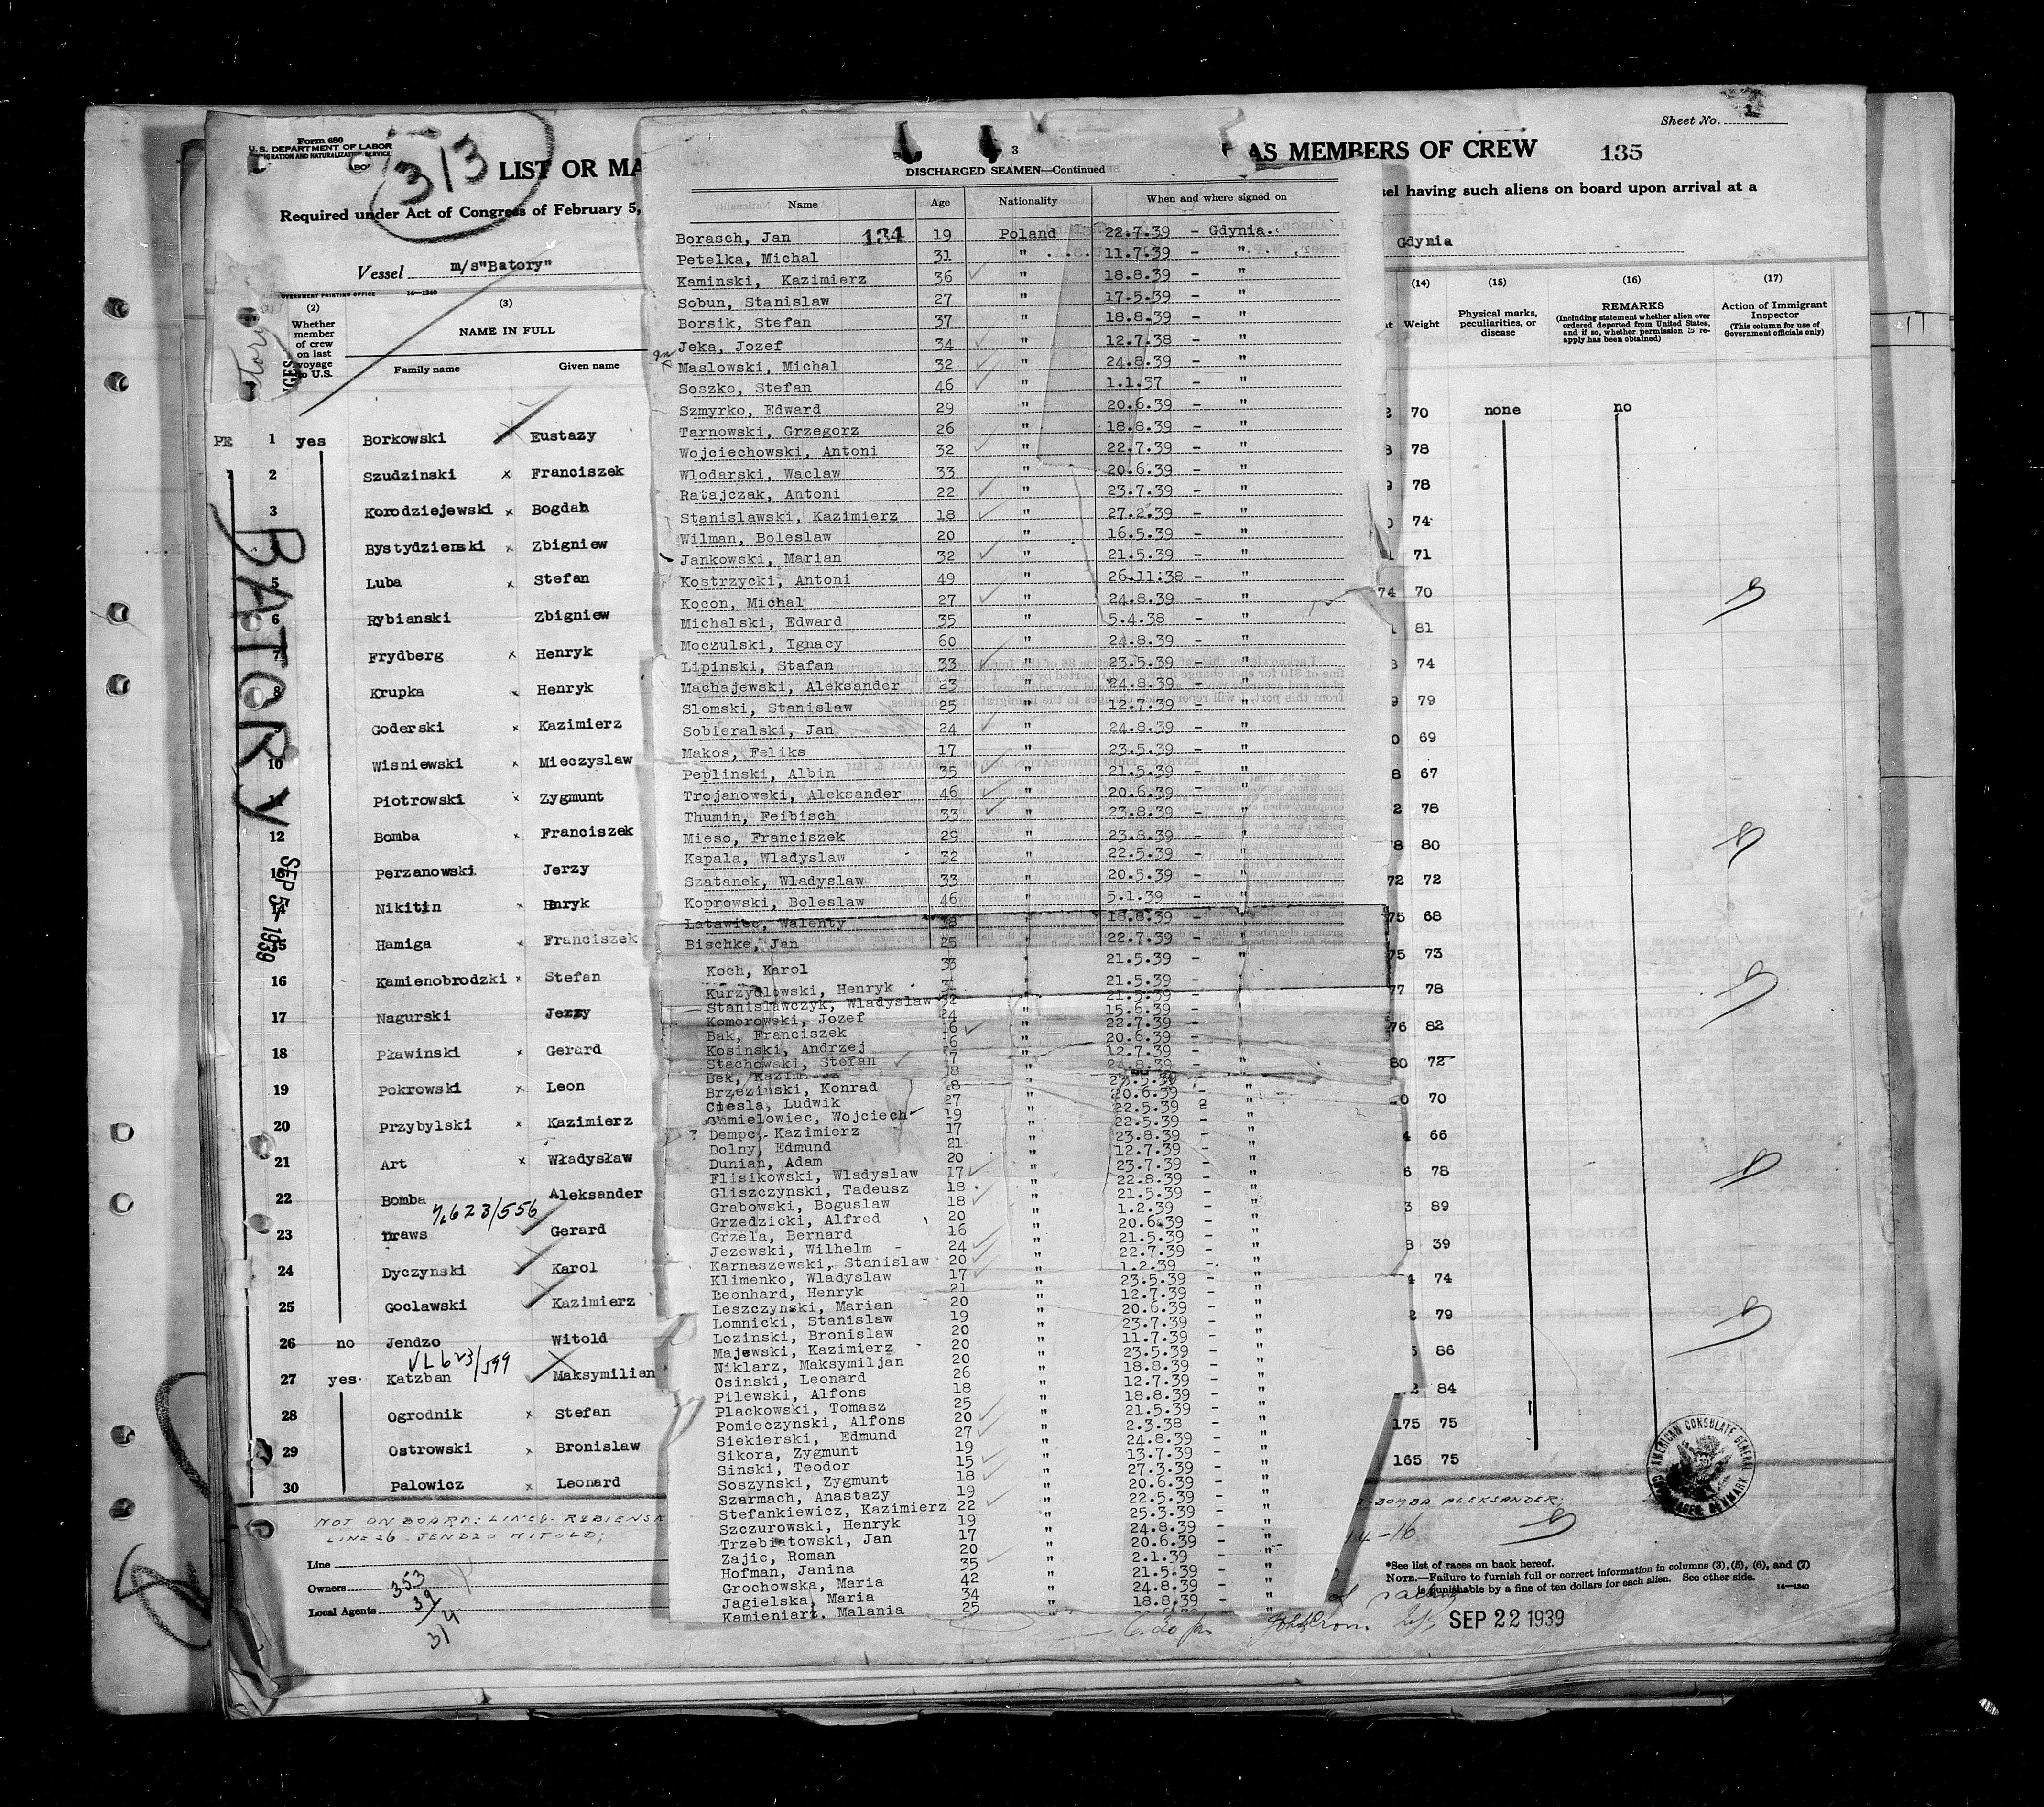 Form 680
U.S. DEPARTMENT OF LABOR
IMMIGRATION AND NATURALIZATION SERVICE
313
LIST OR MA
AS MEMBERS OF CREW
135
Sheet No. 1
Required under Act of Congress of February 5,
sel having such aliens on board upon arrival at a
Gdynia
Vessel m/s"Batory"
GOVERNMENT PRINTING OFFICE 14—1240
(2) (3)
Whether member of crew on last voyage to U.S.
NAME IN FULL
Family name Given name
BATORY
SEP 5- 1939
PE 1 yes Borkowski Eustazy
2 Szudzinski x Franciszek
3 Korodziejewski x Bogdan
Bystydzienski x Zbigniew
5 Luba x Stefan
6 Rybianski Zbigniew
7 Frydberg x Henryk
8 Krupka Henryk
Goderski x Kazimierz
10 Wisniewski x Mieczyslaw
Piotrowski x Zygmunt
12 Bomba x Franciszek
13 Perzanowski Jerzy
14 Nikitin x Hnryk
15 Hamiga x Franciszek
16 Kamienobrodzki x Stefan
17 Nagurski Jerzy
18 Pławinski x Gerard
19 Pokrowski x Leon
20 Przybylski x Kazimierz
21 Art x Władysław
22 Bomba Aleksander
623/556
23 Draws Gerard
24 Dyczynski Karol
25 Goclawski Kazimierz
26 no Jendzo Witold
VL 623/599
27 yes Katzban Maksymilian
28 Ogrodnik x Stefan
29 Ostrowski x Bronislaw
30 Palowicz x Leonard
NOT ON BOARD: LINE 6- REBIENSK
LINE 26 - JENDZO WITOLD;
Line
Owners
Local Agents
353
39
314
3
DISCHARGED SEAMEN—Continued
Name Age Nationality When and where signed on
Borasch, Jan 134 19 Poland 22.7.39 - Gdynia.
Petelka, Michal 31 " 11.7.39 - "
Kaminski, Kazimierz 36 " 18.8.39 - "
Sobun, Stanislaw 27 " 17.5.39 - "
Borsik, Stefan 37 " 18.8.39 - "
Jeka, Jozef 34 " 12.7.38 - "
Maslowski, Michal 32 " 24.8.39 - "
Soszko, Stefan 46 " 1.1.37 - "
Szmyrko, Edward 29 " 20.6.39 - "
Tarnowski, Grzegorz 26 " 18.8.39 - "
Wojciechowski, Antoni 32 " 22.7.39 - "
Wlodarski, Waclaw 33 " 20.6.39 - "
Ratajczak, Antoni 22 " 23.7.39 - "
Stanislawski, Kazimierz 18 " 27.2.39 - "
Wilman, Boleslaw 20 " 16.5.39 - "
Jankowski, Marian 32 " 21.5.39 - "
Kostrzycki, Antoni 49 " 26.11:38 - "
Kocon, Michal 27 " 24.8.39 - "
Michalski, Edward 35 " 5.4.38 - "
Moczulski, Ignacy 60 " 24.8.39 - "
Lipinski, Stafan 33 " 23.5.39 - "
Machajewski, Aleksander 23 " 24.8.39 - "
Slomski, Stanislaw 25 " 12.7.39 - "
Sobieralski, Jan 24 " 24.8.39 - "
Makos, Feliks 17 " 23.5.39 - "
Peplinski, Albin 35 " 21.5.39 - "
Trojanowski, Aleksander 46 " 20.6.39 - "
Thumin, Feibisch 33 " 23.8.39 - "
Mieso, Franciszek 29 " 23.8.39 - "
Kapala, Wladyslaw 32 " 22.5.39 - "
Szatanek, Wladyslaw 33 " 20.5.39 - "
Koprowski, Boleslaw 46 " 5.1.39 - "
Latawiec, Walenty " 18.8.39 - "
Bischke, Jan 25 " 22.7.39 - "
Koch, Karol 33 " 21.5.39 - "
Kurzydlowski, Henryk " 21.5.39 - "
Stanislawczyk, Wladyslaw 32 21.5.39 -
Komorowski, Jozef 24 " 15.6.39 -
Bak, Franciszek 22.7.39 -
Kosinski, Andrzej 20.6.39 -
Stachowski, Stefan 12.7.39 -
Bek, Kazimierz 24.8.39 -
Brzezinski, Konrad 23.5.39
Ciesla, Ludwik 27 20.6.39 -
Chmielowiec, Wojciech 19 22.5.39
? Dempc, Kazimierz 17 22.5.39 -
Dolny, Edmund 21 23.8.39 -
Dunian, Adam 20 12.7.39 -
Flisikowski, Wladyslaw 17 23.7.39 -
Gliszczynski, Tadeusz 18 22.8.39 -
Grabowski, Boguslaw 18 21.5.39 -
Grzedzicki, Alfred 20 1.2.39 -
Grzela, Bernard 16 20.6.39 -
Jezewski, Wilhelm - 24 21.5.39 -
Karnaszewski, Stanislaw 20 22.7.39 -
Klimenko, Wladyslaw 17 1.2.39 -
Leonhard, Henryk 21 23.5.39 -
Leszczynski, Marian 20 12.7.39 -
Lomnicki, Stanislaw 19 20.6.39 -
Lozinski, Bronislaw 20 23.7.39 -
Majewski, Kazimierz 20 11.7.39 -
Niklarz, Maksymiljan 20 23.5.39 -
Osinski, Leonard 26 18.8.39 -
Pilewski, Alfons 18 12.7.39 -
Plackowski, Tomasz 25 18.8.39 -
Pomieczynski, Alfons 20 21.5.39 -
Siekierski, Edmund 27 2.3.38 -
Sikora, Zygmunt 19 24.8.39 -
Sinski, Teodor 15 13.7.39 -
Soszynski, Zygmunt 18 27.3.39 -
Szarmach, Anastazy 19 20.6.39 -
Stefankiewicz, Kazimierz 22 22.5.39 -
Szczurowski, Henryk 19 25.3.39 -
Trzebiatowski, Jan 17 24.8.39 -
Zajic, Roman 20 20.6.39 -
Hofman, Janina 35 2.1.39 -
Grochowska, Maria 42 21.5.39 -
Jagielska, Maria 34 24.8.39 -
Kamieniarz, Malania 25 18.8.39 -
(14) (15) (16) (17)
Weight
Physical marks, peculiarities, or disease
REMARKS
(Including statement whether alien ever ordered deported from United States, and if so, whether permission to re-apply has been obtained)
Action of Immigrant Inspector
(This column for use of Government officials only)
70 none no
78
78
74
71
74 70
81
74
79
69
67
78
78 80
72 72
75 68
75 73
77 78
76 82
80 72
70
66
78
89
39
74
79
86
84
175 75
165 75
AMERICAN CONSULATE GENERAL
COPENHAGEN, DENMARK
BOMBA ALEKSANDER;
*See list of races on back hereof.
NOTE.—Failure to furnish full or correct information in columns (3), (5), (6), and (7)
is punishable by a fine of ten dollars for each alien. See other side. 14—1240
SEP 22 1939